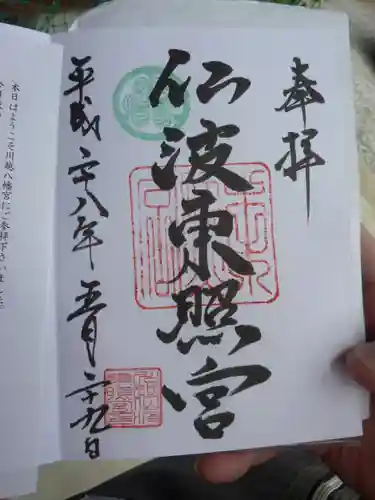 奉拝
仁波東照宮
平成二十八年五月二十九日
本日はようこそ川越八幡宮にご参拝下さいました。